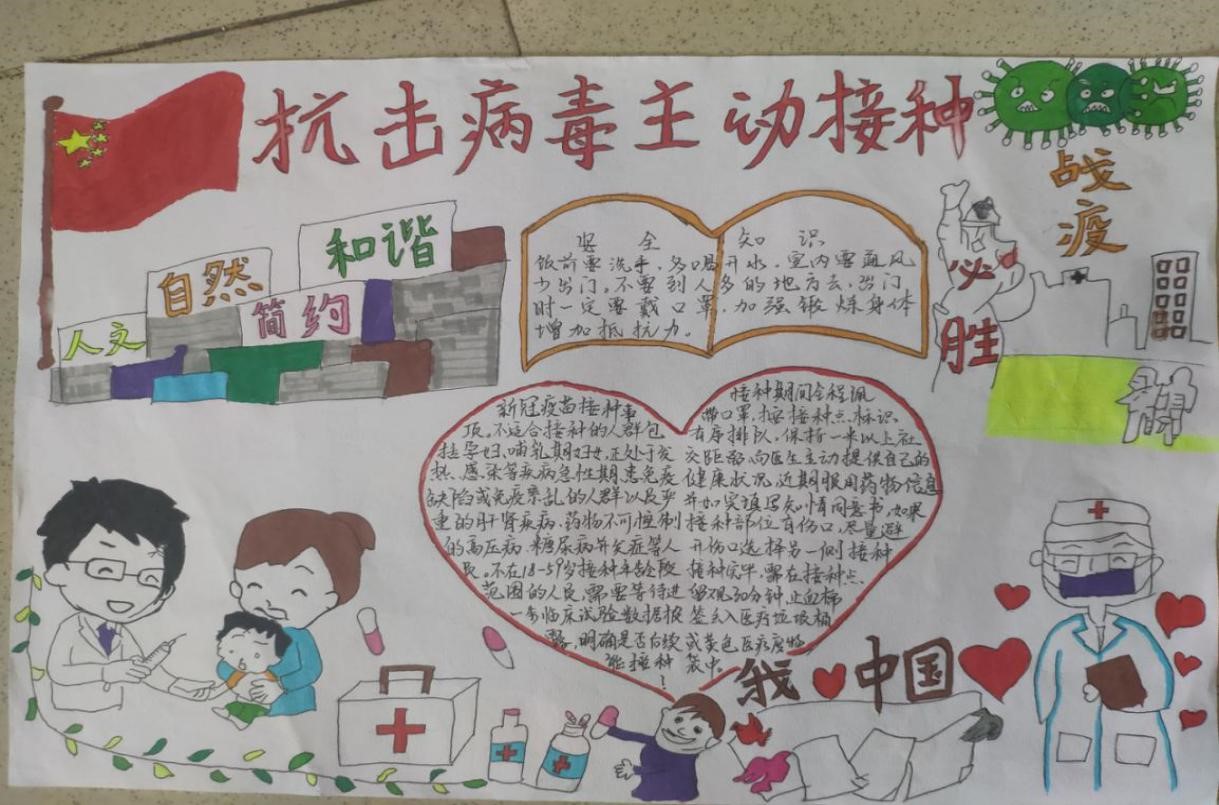 抗击病毒主动接种
战
疫
必
胜
和谐
自然
简约
人文
安全知识
饭前要洗手,多喝开水,室内要通风
少出门。不要到人多的地方去,出门
时一定要戴口罩,加强锻炼身体
增加抵抗力。
新冠疫苗接种事
项。不适合接种的人群包
括孕妇、哺乳期妇女,正处于发
热、感染等疾病急性期患免疫
缺陷或免疫紊乱的人群以及严
重的肝肾疾病、药物不可控制
的高压病、糖尿病并发症等人
员。不在18-59岁接种年龄段
范围的人员,需要等待进
一步临床试验数据报
明确是否后续
能接种
!
接种期间全程佩
带口罩,按接种点标识
有序排队,保持一米以上社
交距离,向医生主动提供自己的
健康状况近期服用药物信息
并如实填写知情同意书,如果
接种部位有伤口,尽量避
开伤口选择另一侧接种
接种完毕,需在接种点
留观30分钟,止血棉
签丢入医疗垃圾桶
或黄色医疗废物
袋中。
我中国